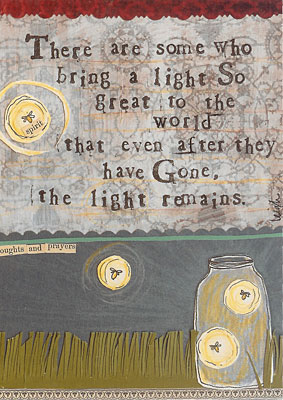 There are some who
bring a light So
great to the
world
that even after they
have Gone,
the light remains.
spirit
oughts and prayers